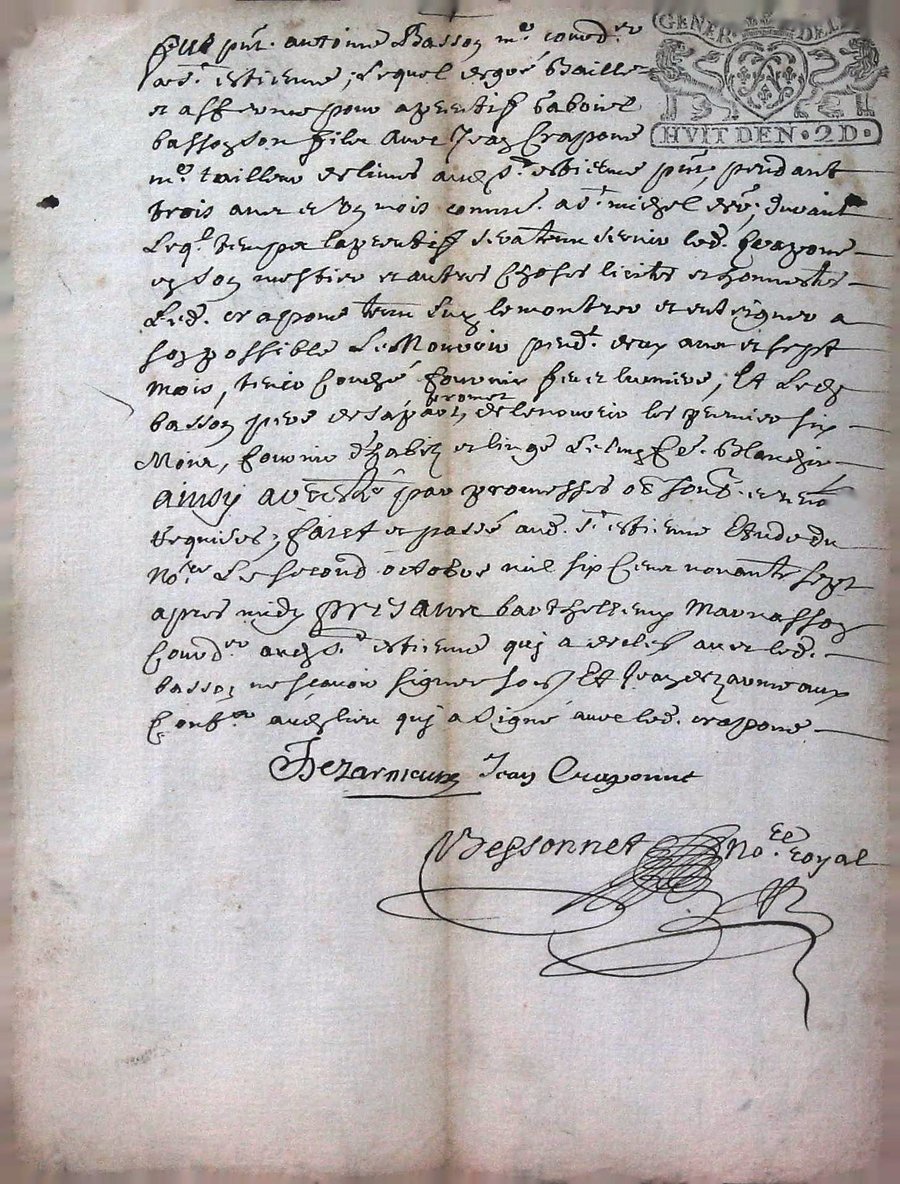 GENER · DEL
HVIT DEN · 2D ·
fut pnt. antoine Basson me. cond.er
a st. estienne, Lequel de gré Baille
et afferme pour aprentif Gaboriel
basson son filz avec Jean Crapone
me. tailleur de limes aud. st. estienne pnt, pendant
trois ans et un mois comme. a st. michel der.e, durant
Leql. temps l'aprentif sera tenu servir led. Crapone
en son mestier et autres choses licites et honnestes
Led. crapone tenu luy le montrer et enseigner a
son possible Le Nourrir pendt. deux ans et sept
mois, tenir couché fournir feu et lumiere, Et Led.
basson pere de sa part promet de le nourrir les premier six
Mois, fournir d'habitz et linge Blanchir
ainsy par promesses
requises, faict et passé aud. st. estienne Etude du
No.re Le second octobre mil six Cent nonante sept
apres midy presant barthellemy Marnasson
Cond.er aud. st. estienne quj a declé avec led.
basson ne scavoir signer Et Jean dezarmeaux
aud. lieu quj a signé avec led. crapone
Dezarmeaux Jean Craponne
Bessonnet No.re royal